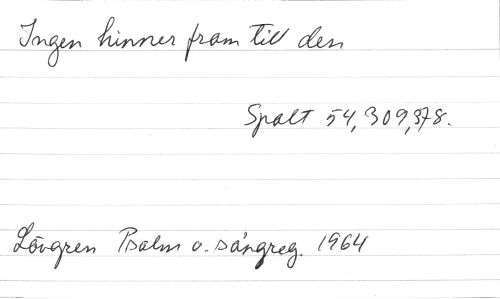 Ingen hinner fram till den
Spalt 54, 309, 378.
Lövgren Psalm o. sångreg. 1964